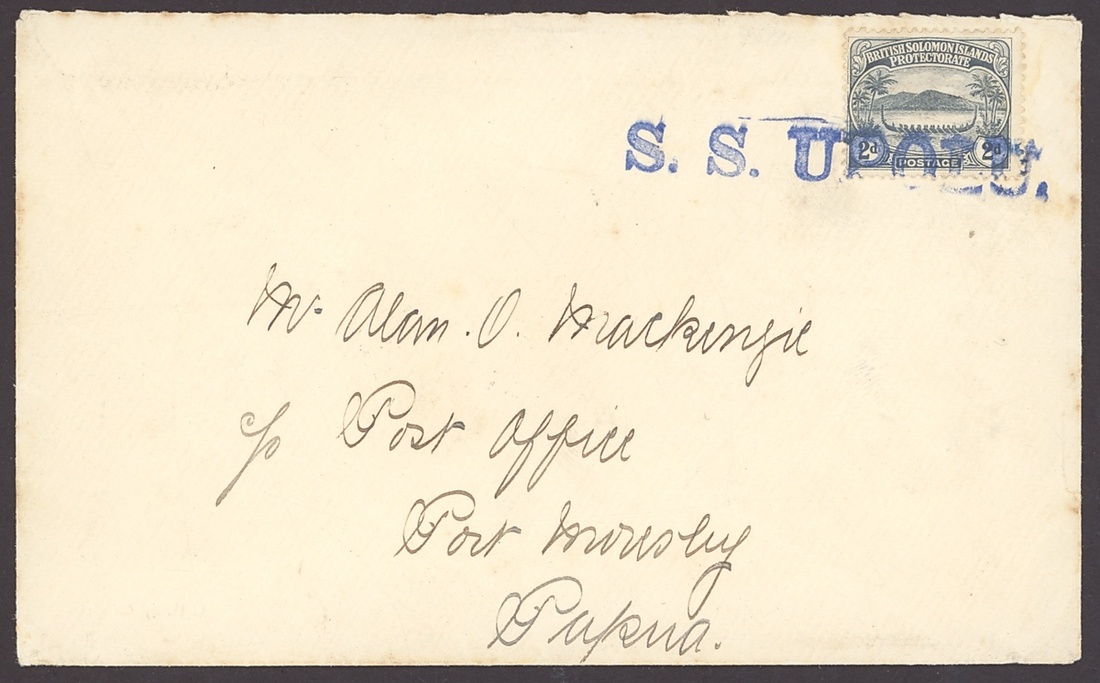 BRITISH SOLOMON ISLANDS
PROTECTORATE
2d POSTAGE 2d
S. S. UPOLU.
Mr. Alan. O. Mackenzie
c/o Post Office
Port Moresby
Papua.